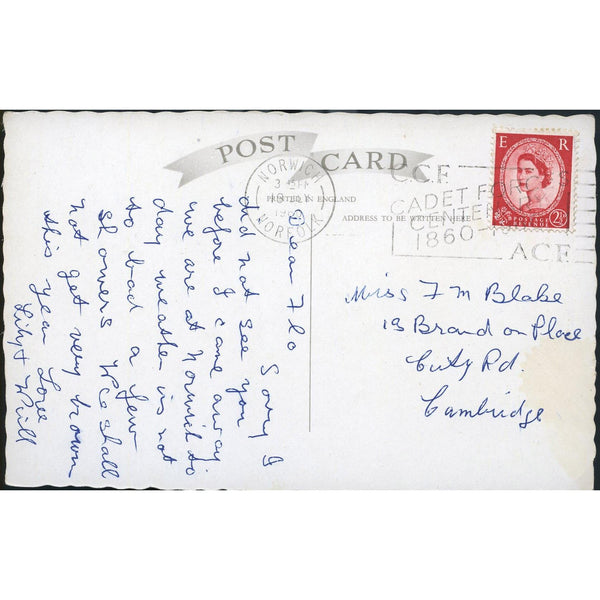 POST CARD
PRINTED IN ENGLAND
ADDRESS TO BE WRITTEN HERE
NORWICH
NORFOLK
C.C.F.
CADET
CENTE
1860-
A.C.F.
E R
POSTAGE
REVENUE
2½
Dear Flo Sorry I
did not see you
before I came away
we are at Norwich to
day weather is not
to bad a few
showers We shall
not get very brown
this year Love
Lily & Will
Miss F M Blake
13 Brand on Place
City Rd.
Cambridge